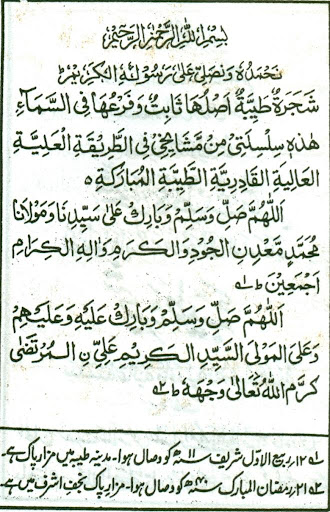 بِسْمِ اللهِ الرَّحْمٰنِ الرَّحِيْمِ
نَحْمَدُهٗ وَنُصَلِّيْ عَلٰى رَسُوْلِهِ الْكَرِيْمِ ط
شَجَرَةٌ طَيِّبَةٌ اَصْلُهَا ثَابِتٌ وَّفَرْعُهَا فِى السَّمَآءِ
هٰذِهٖ سِلْسِلَتِىْ مِنْ مَشَائِخِىْ فِى الطَّرِيْقَةِ الْعَلِيَّةِ
الْعَالِيَةِ الْقَادِرِيَّةِ الطَّيِّبَةِ الْمُبَارَكَةِ ه
اَللّٰهُمَّ صَلِّ وَسَلِّمْ وَبَارِكْ عَلٰى سَيِّدِنَا وَمَوْلَانَا
مُحَمَّدٍ مَّعْدِنِ الْجُوْدِ وَالْكَرَمِ وَاٰلِهِ الْكِرَامِ
اَجْمَعِيْنَ ط ؂۱
اَللّٰهُمَّ صَلِّ وَسَلِّمْ وَبَارِكْ عَلَيْهِ وَعَلَيْهِمْ
وَعَلَى الْمَوْلَى السَّيِّدِ الْكَرِيْمِ عَلِيِّ نِ الْمُرْتَضٰى
كَرَّمَ اللهُ تَعَالٰى وَجْهَهٗ ط ؂۲
؂۱ ۱۲ ربیع الاوّل شریف ۱۱ سنہ ھ کو وصال ہوا۔ مدینہ طیبہ میں مزار پاک ہے۔
؂۲ ۲۱ رمضان المبارک ۴۰ سنہ ھ کو وصال ہوا۔ مزار پاک نجف اشرف میں ہے۔